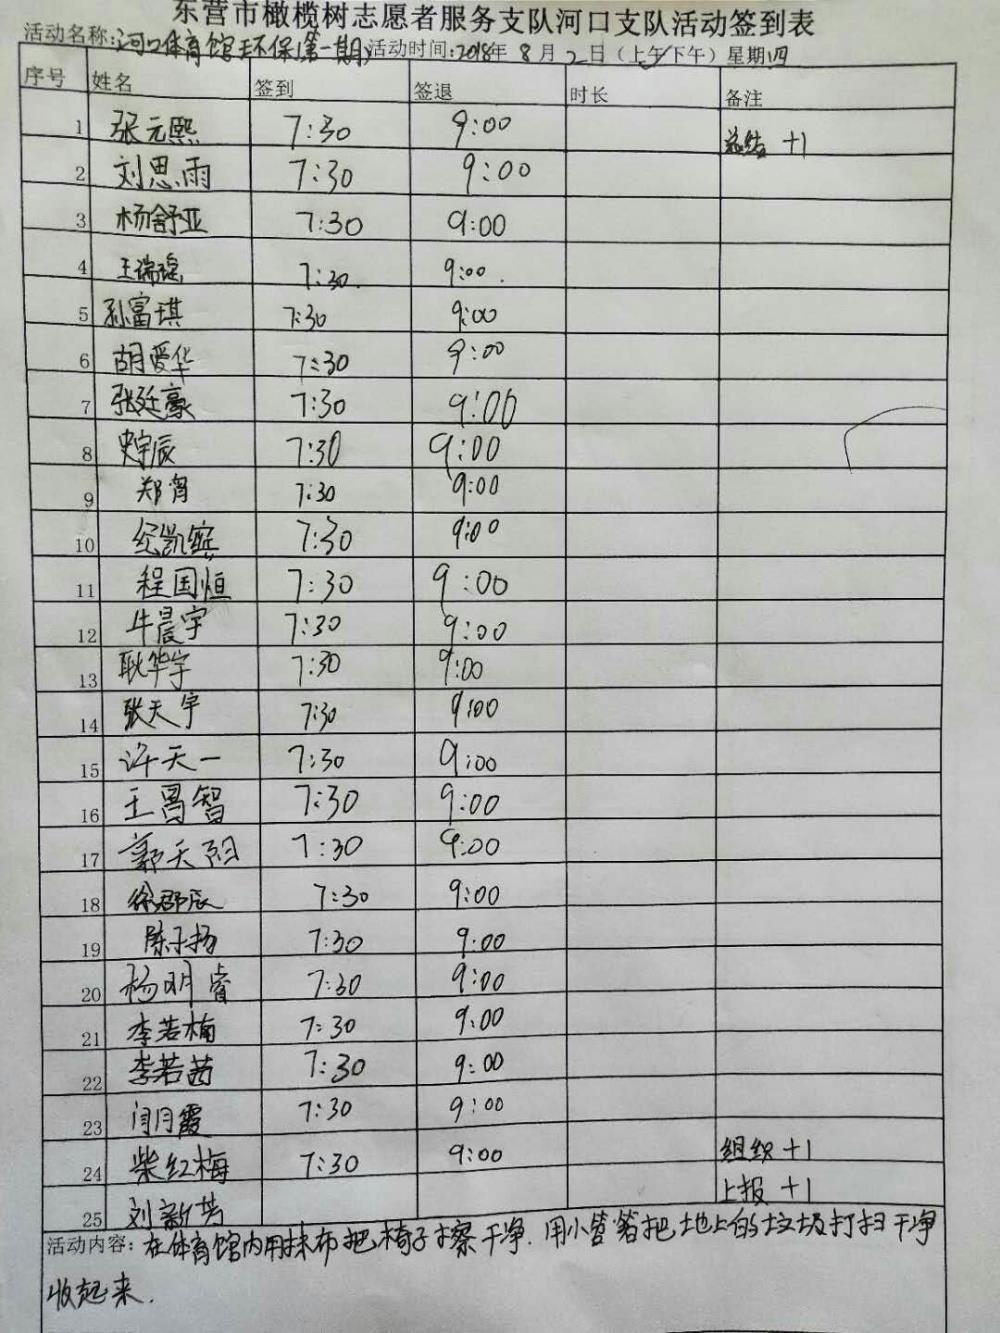 东营市橄榄树志愿者服务支队河口支队活动签到表
活动名称:河口体育馆环保(第一期) 活动时间:2018年 8月 2日(上午/下午) 星期四
序号 姓名 签到 签退 时长 备注
1 张元熙 7:30 9:00 总结 +1
2 刘思雨 7:30 9:00
3 杨舒亚 7:30 9:00
4 王瑞瑶 7:30. 9:00.
5 孙富琪 7:30 9:00
6 胡爱华 7:30 9:00
7 张廷豪 7:30 9:00
8 史宇辰 7:30 9:00
9 郑宵 7:30 9:00
10 纪凯 7:30 9:00
11 程国恒 7:30 9:00
12 牛晨宇 7:30 9:00
13 耿华宇 7:30 9:00
14 张天宇 7:30 9:00
15 许天一 7:30 9:00
16 王智 7:30 9:00
17 郭天阳 7:30 9:00
18 徐郡辰 7:30 9:00
19 陈子扬 7:30 9:00
20 杨明睿 7:30 9:00
21 李若楠 7:30 9:00
22 李若茜 7:30 9:00
23 闫月霞 7:30 9:00
24 柴红梅 7:30 9:00 组织 +1
25 刘新芳 上报 +1
活动内容:在体育馆内用抹布把椅子擦干净.用小笤箸把地上的垃圾打扫干净
收起来.